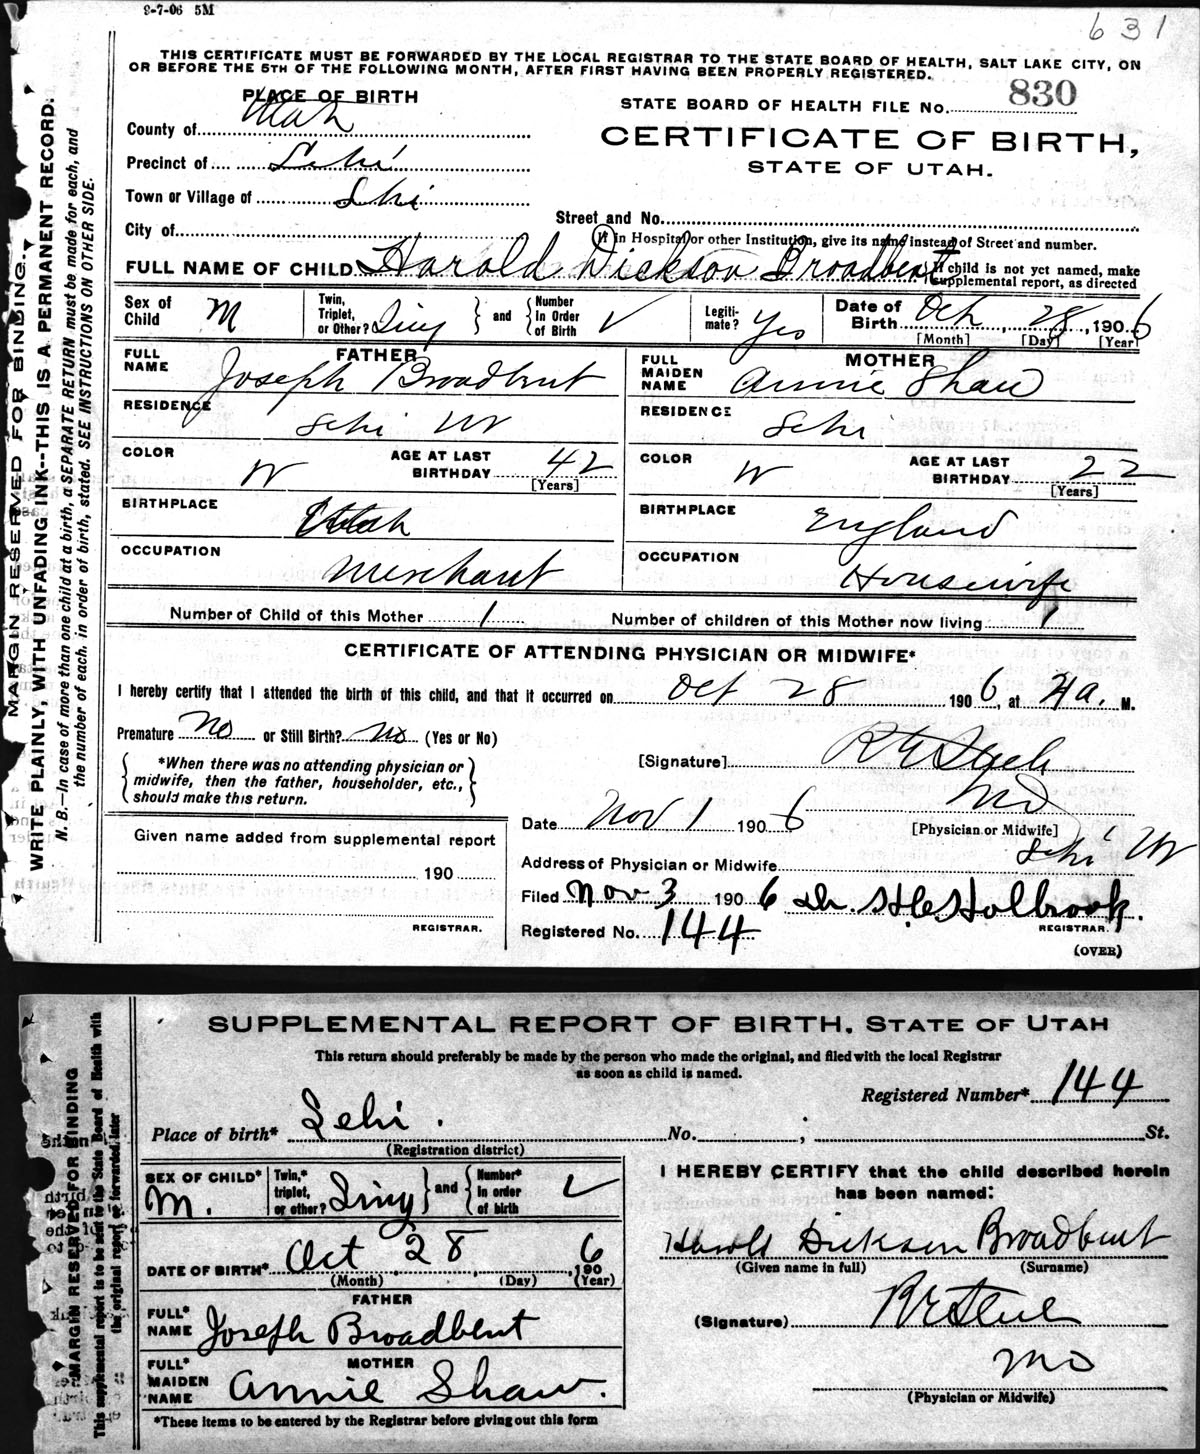 9-7-06 5M
631
THIS CERTIFICATE MUST BE FORWARDED BY THE LOCAL REGISTRAR TO THE STATE BOARD OF HEALTH, SALT LAKE CITY, ON
OR BEFORE THE 5TH OF THE FOLLOWING MONTH, AFTER FIRST HAVING BEEN PROPERLY REGISTERED.
PLACE OF BIRTH
STATE BOARD OF HEALTH FILE No. 830
County of Utah
CERTIFICATE OF BIRTH,
STATE OF UTAH.
Precinct of Lehi
Town or Village of Lehi
Street and No.
City of
If in Hospital or other Institution, give its name instead of Street and number.
FULL NAME OF CHILD Harold Dickson Broadbent { If child is not yet named, make supplemental report, as directed
Sex of Child M
Twin, Triplet, or Other? Sing } and { Number In Order of Birth ✓
Legitimate? Yes
Date of Birth Oct, 28, 1906
[Month] [Day] [Year]
FATHER
FULL NAME Joseph Broadbent
MOTHER
FULL MAIDEN NAME Annie Shaw
RESIDENCE Lehi Ut
RESIDENCE Lehi
COLOR W AGE AT LAST BIRTHDAY 42 [Years]
COLOR W AGE AT LAST BIRTHDAY 22 [Years]
BIRTHPLACE Utah
BIRTHPLACE England
OCCUPATION Merchant
OCCUPATION Housewife
Number of Child of this Mother 1 Number of children of this Mother now living 1
CERTIFICATE OF ATTENDING PHYSICIAN OR MIDWIFE*
I hereby certify that I attended the birth of this child, and that it occurred on Oct 28 1906, at 4 a. M.
Premature No or Still Birth? No (Yes or No)
*When there was no attending physician or
midwife, then the father, householder, etc.,
should make this return.
[Signature] R E Steele
MD
[Physician or Midwife]
Date Nov 1 1906
Given name added from supplemental report
190
REGISTRAR.
Address of Physician or Midwife Lehi Ut
Filed Nov 3 1906 Dr. Holbrook.
REGISTRAR.
Registered No. 144
(OVER)
MARGIN RESERVED FOR BINDING.
WRITE PLAINLY, WITH UNFADING INK--THIS IS A PERMANENT RECORD.
N. B.—In case of more than one child at a birth, a SEPARATE RETURN must be made for each, and
the number of each, in order of birth, stated. SEE INSTRUCTIONS ON OTHER SIDE.
SUPPLEMENTAL REPORT OF BIRTH, STATE OF UTAH
This return should preferably be made by the person who made the original, and filed with the local Registrar
as soon as child is named.
Registered Number* 144
Place of birth* Lehi. No. ; St.
(Registration district)
SEX OF CHILD* M.
Twin,* triplet, or other? Sing } and { Number* in order of birth ✓
I HEREBY CERTIFY that the child described herein
has been named:
DATE OF BIRTH* Oct 28, 1906
(Month) (Day) (Year)
Harold Dickson Broadbent
(Given name in full) (Surname)
FATHER
FULL* NAME Joseph Broadbent
(Signature) R E Steele
MD
(Physician or Midwife)
MOTHER
FULL* MAIDEN NAME Annie Shaw.
*These items to be entered by the Registrar before giving out this form
MARGIN RESERVED FOR BINDING
This supplemental report is to be sent to the State Board of Health with
the original report or forwarded later